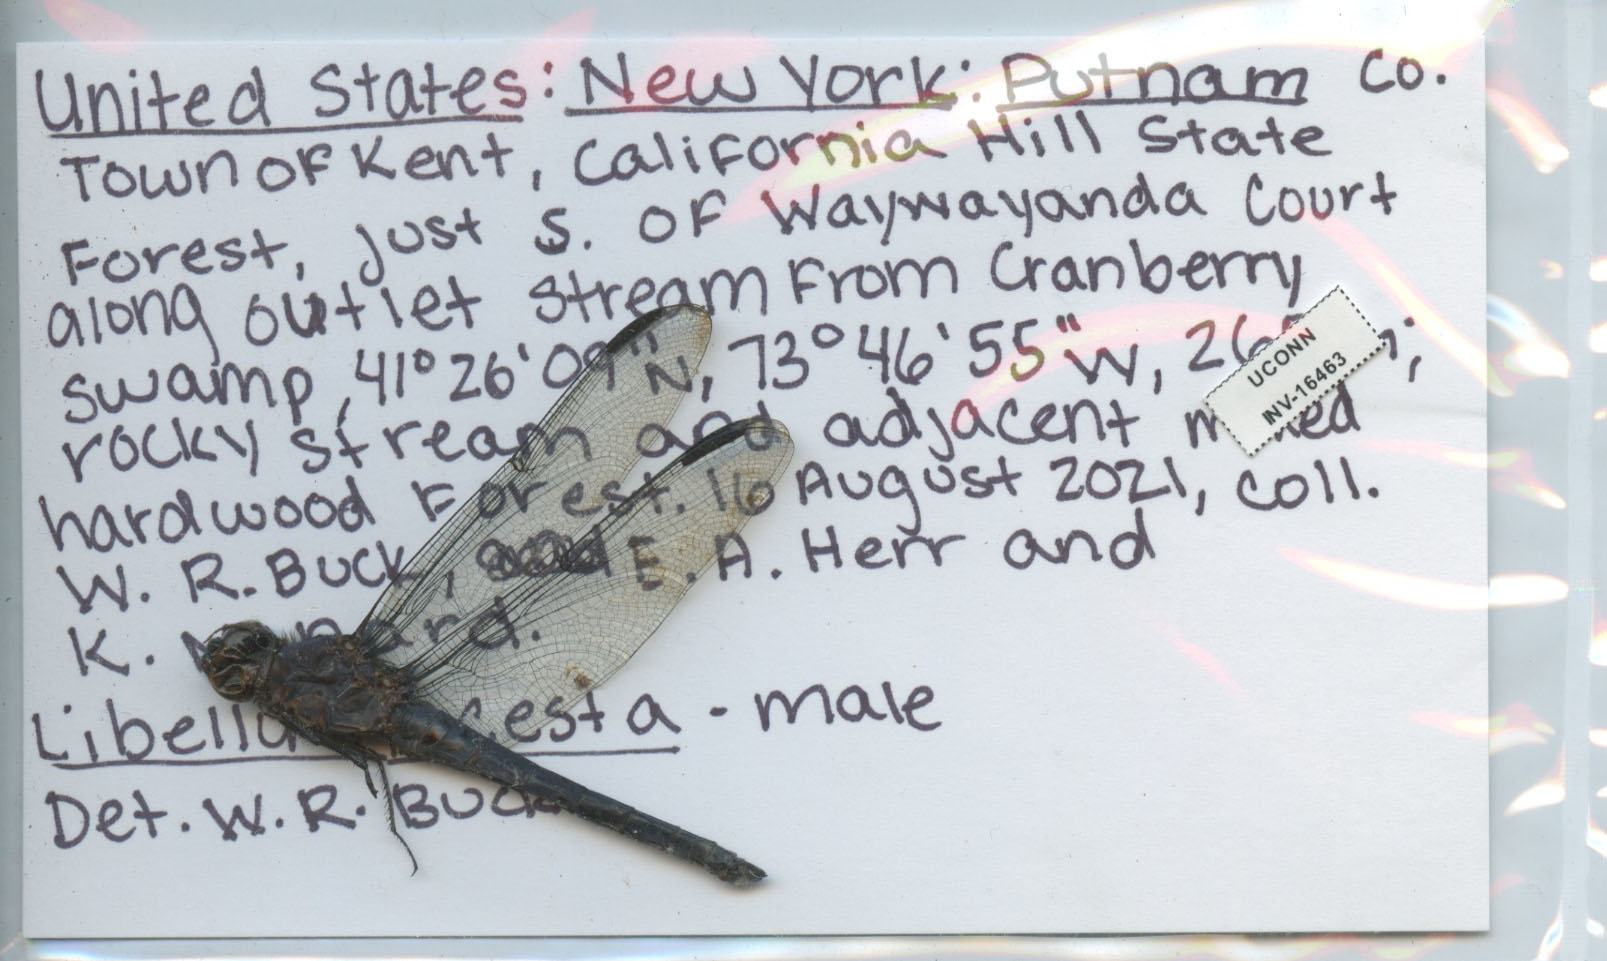 United States: New York: Putnam Co.
Town of Kent, California Hill State
Forest, just S. of Waywayanda Court
along outlet stream from Cranberry
swamp, 41°26'09"N, 73°46'55"W,
rocky stream and adjacent
hardwood Forest. 16 August 2021, coll.
W. R. Buck, E. A. Herr and
K.
- male
Det. W. R. Buck
UCONN
INV-16463